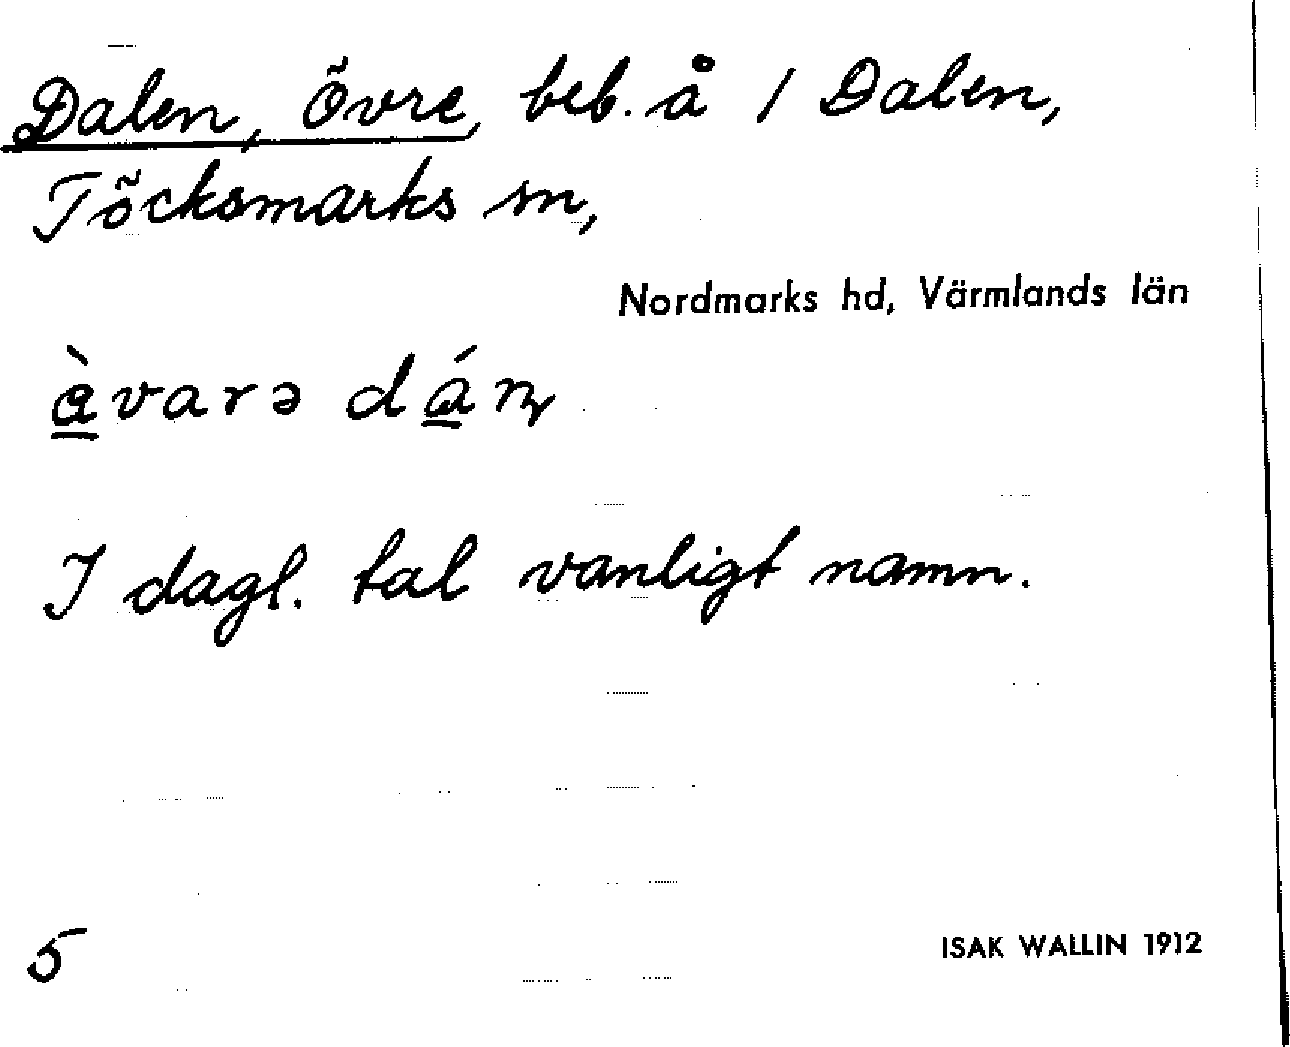 Dalen, Övre, beb. å 1 Dalen,
Töcksmarks sn,
Nordmarks hd, Värmlands län
I dagl. tal vanligt namn.
5
ISAK WALLIN 1912